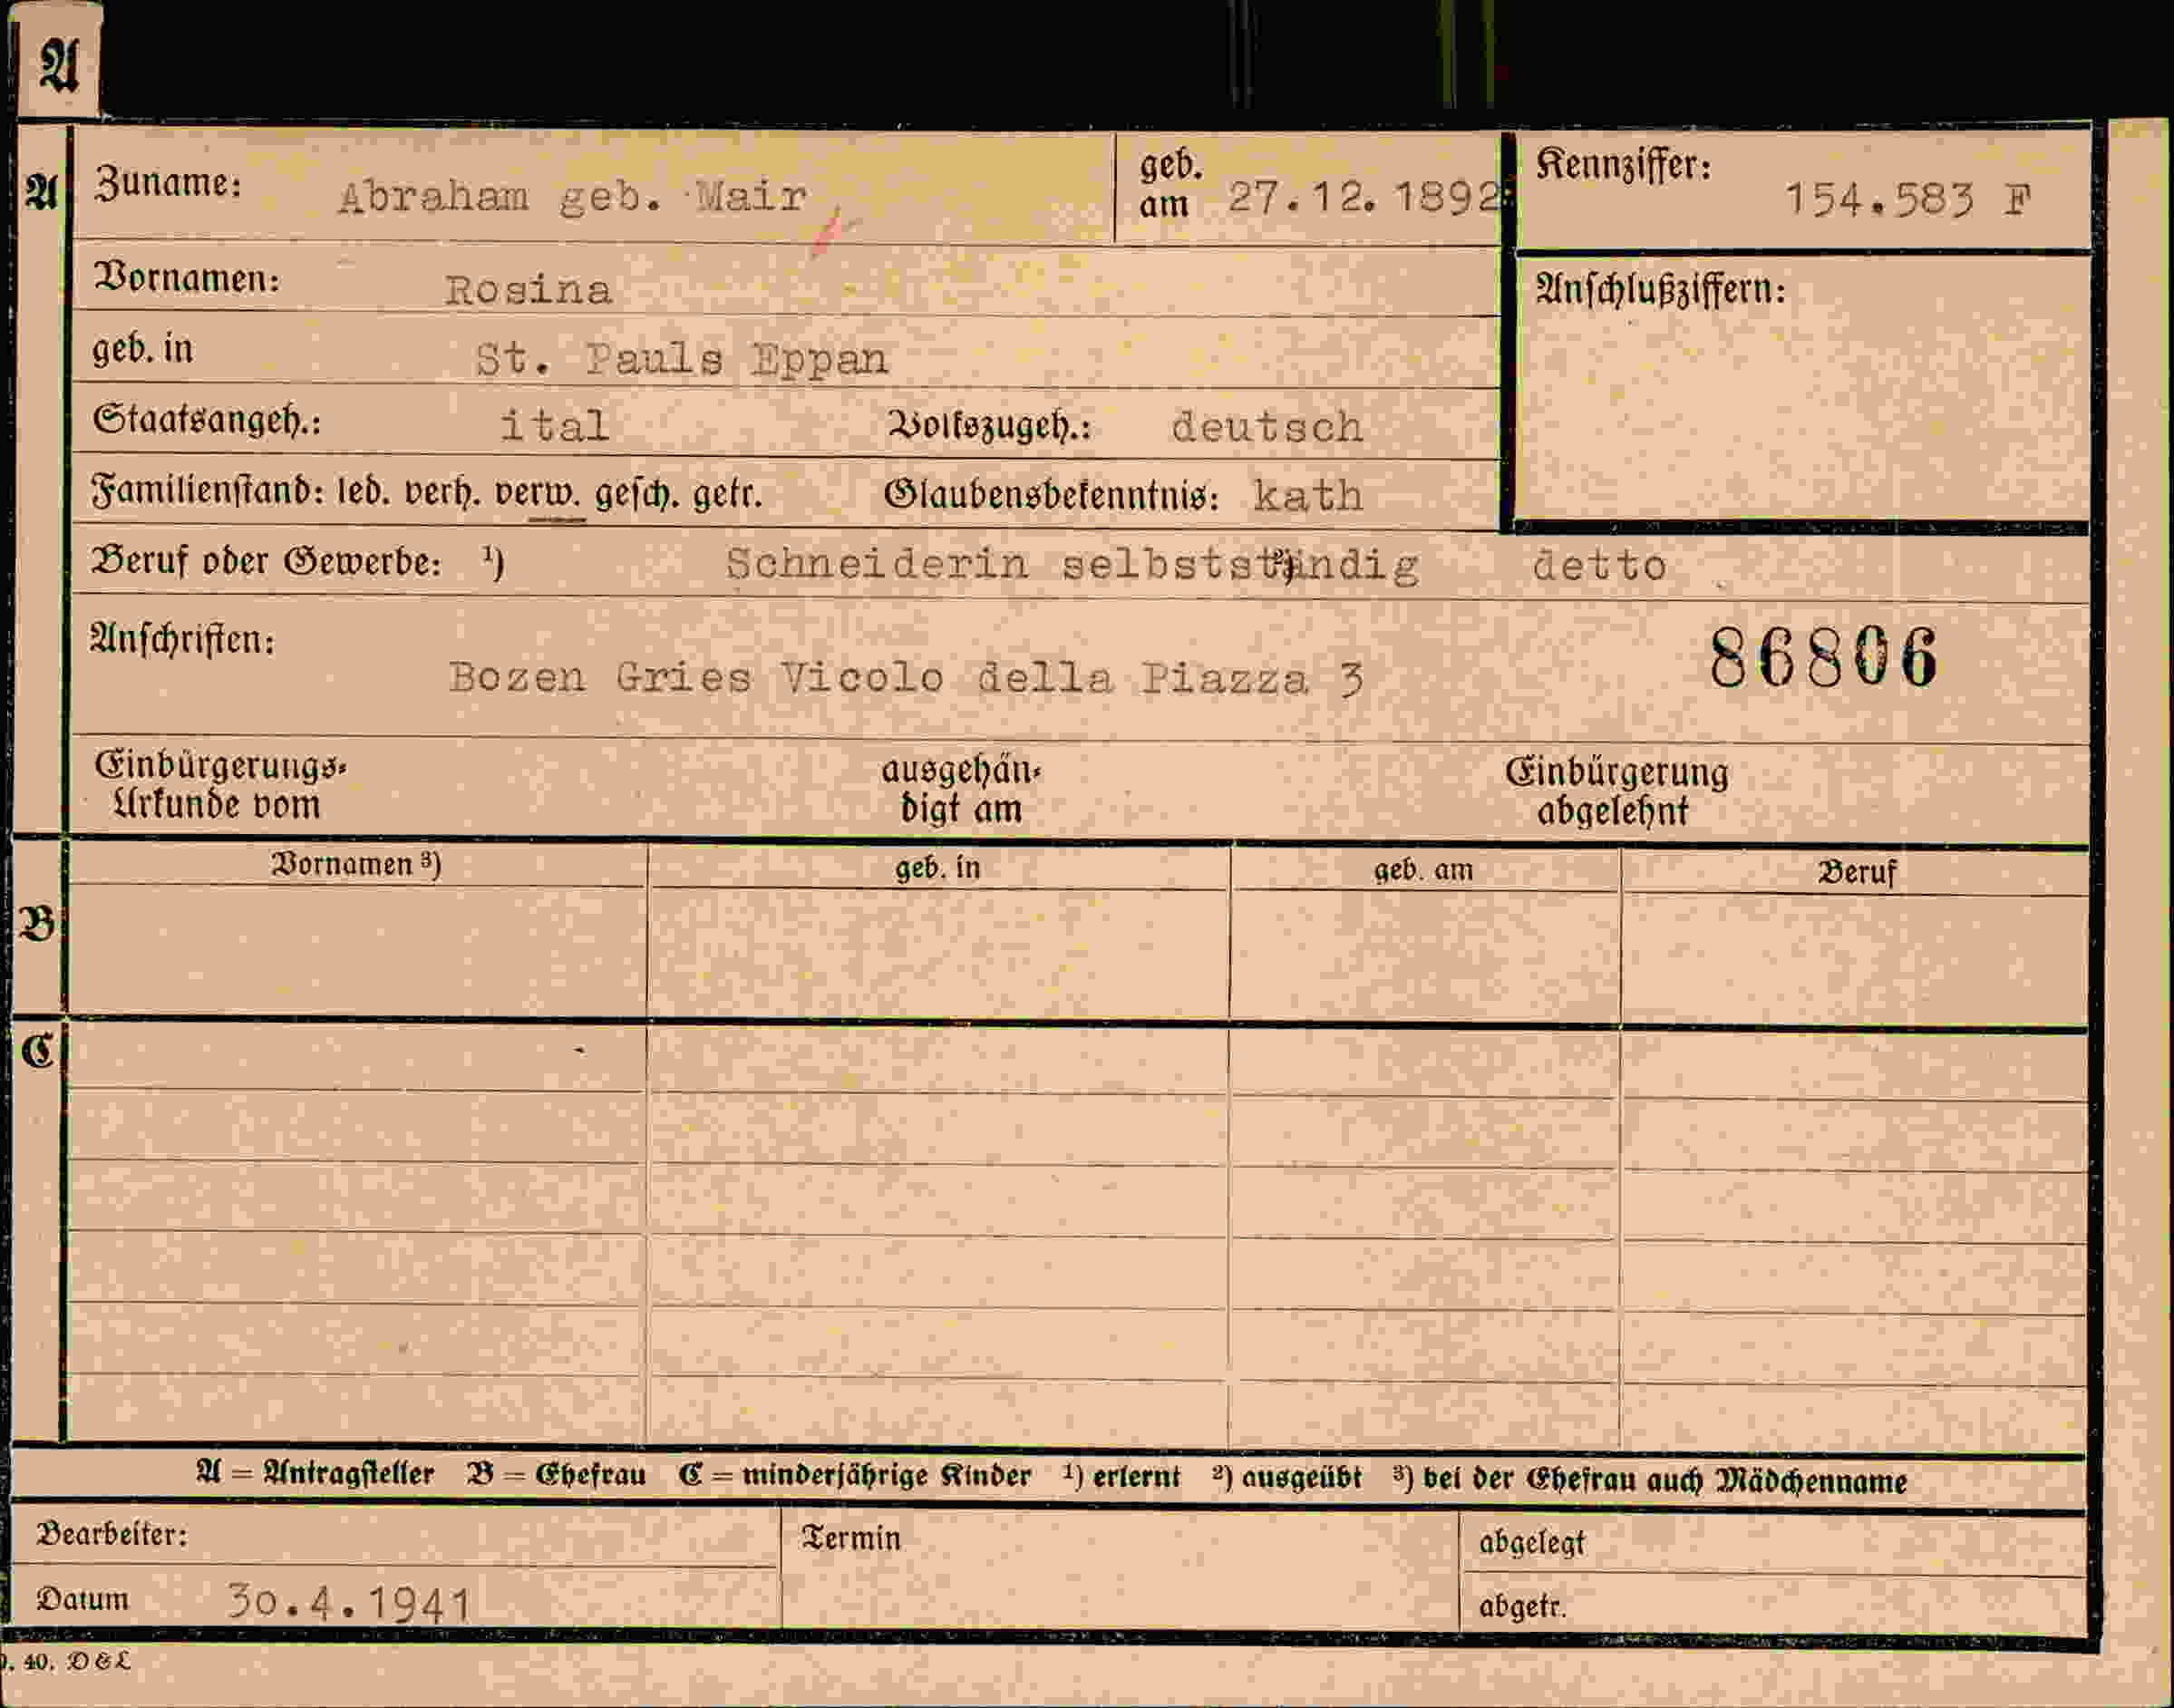 A
A Zuname: Abraham geb. Mair geb. am 27.12.1892 Kennziffer: 154.583 F
Vornamen: Rosina Anschlußziffern:
geb. in St. Pauls Eppan
Staatsangeh.: ital Volkszugeh.: deutsch
Familienstand: led. verh. verw. gesch. getr. Glaubensbekenntnis: kath
Beruf oder Gewerbe: ¹) Schneiderin selbstständig ²) detto
Anschriften: 86806
Bozen Gries Vicolo della Piazza 3
Einbürgerungs- ausgehän- Einbürgerung
Urkunde vom digt am abgelehnt
Vornamen ³) geb. in geb. am Beruf
B
C
A = Antragsteller B = Ehefrau C = minderjährige Kinder ¹) erlernt ²) ausgeübt ³) bei der Ehefrau auch Mädchenname
Bearbeiter: Termin abgelegt
Datum 30.4.1941 abgetr.
40. D&L